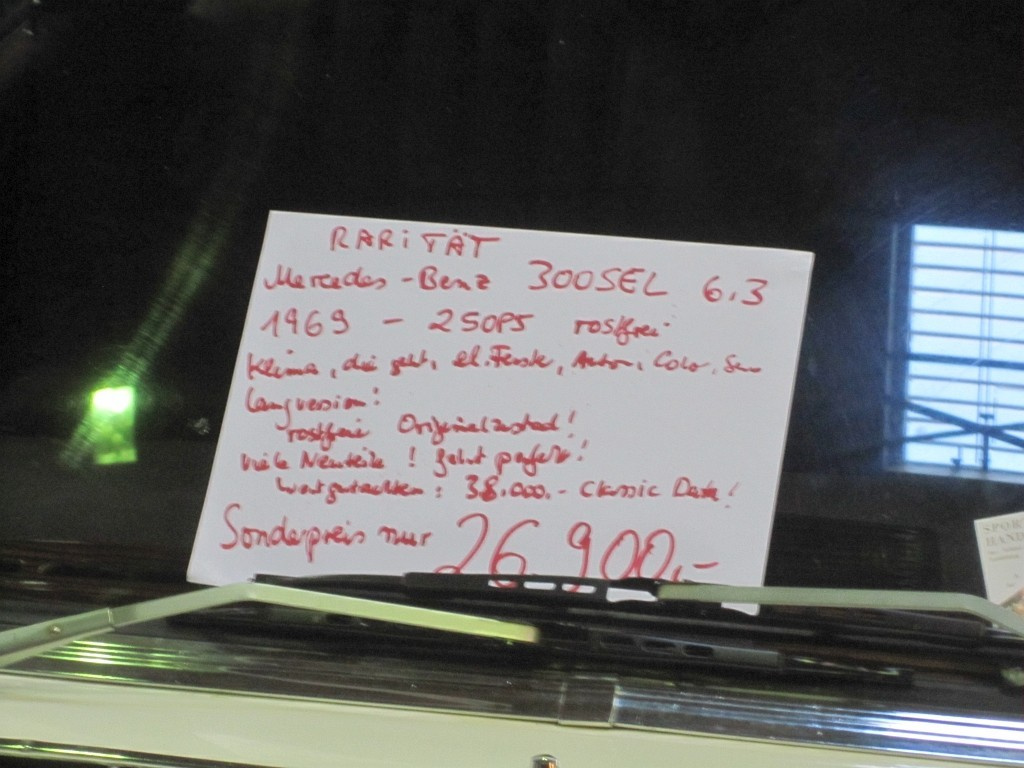 RARiTÄT
Mercedes-Benz 300SEL 6.3
1969 - 250PS rostfrei
Klima, die geht, el. Fenster, Autom, Color, Serv
Langversion!
rostfreie Originalzustand!
viele Neuteile! fährt perfekt!
Wertgutachten: 38.000.- Classic Data!
Sonderpreis nur 26.900,-
SPOR
HAND